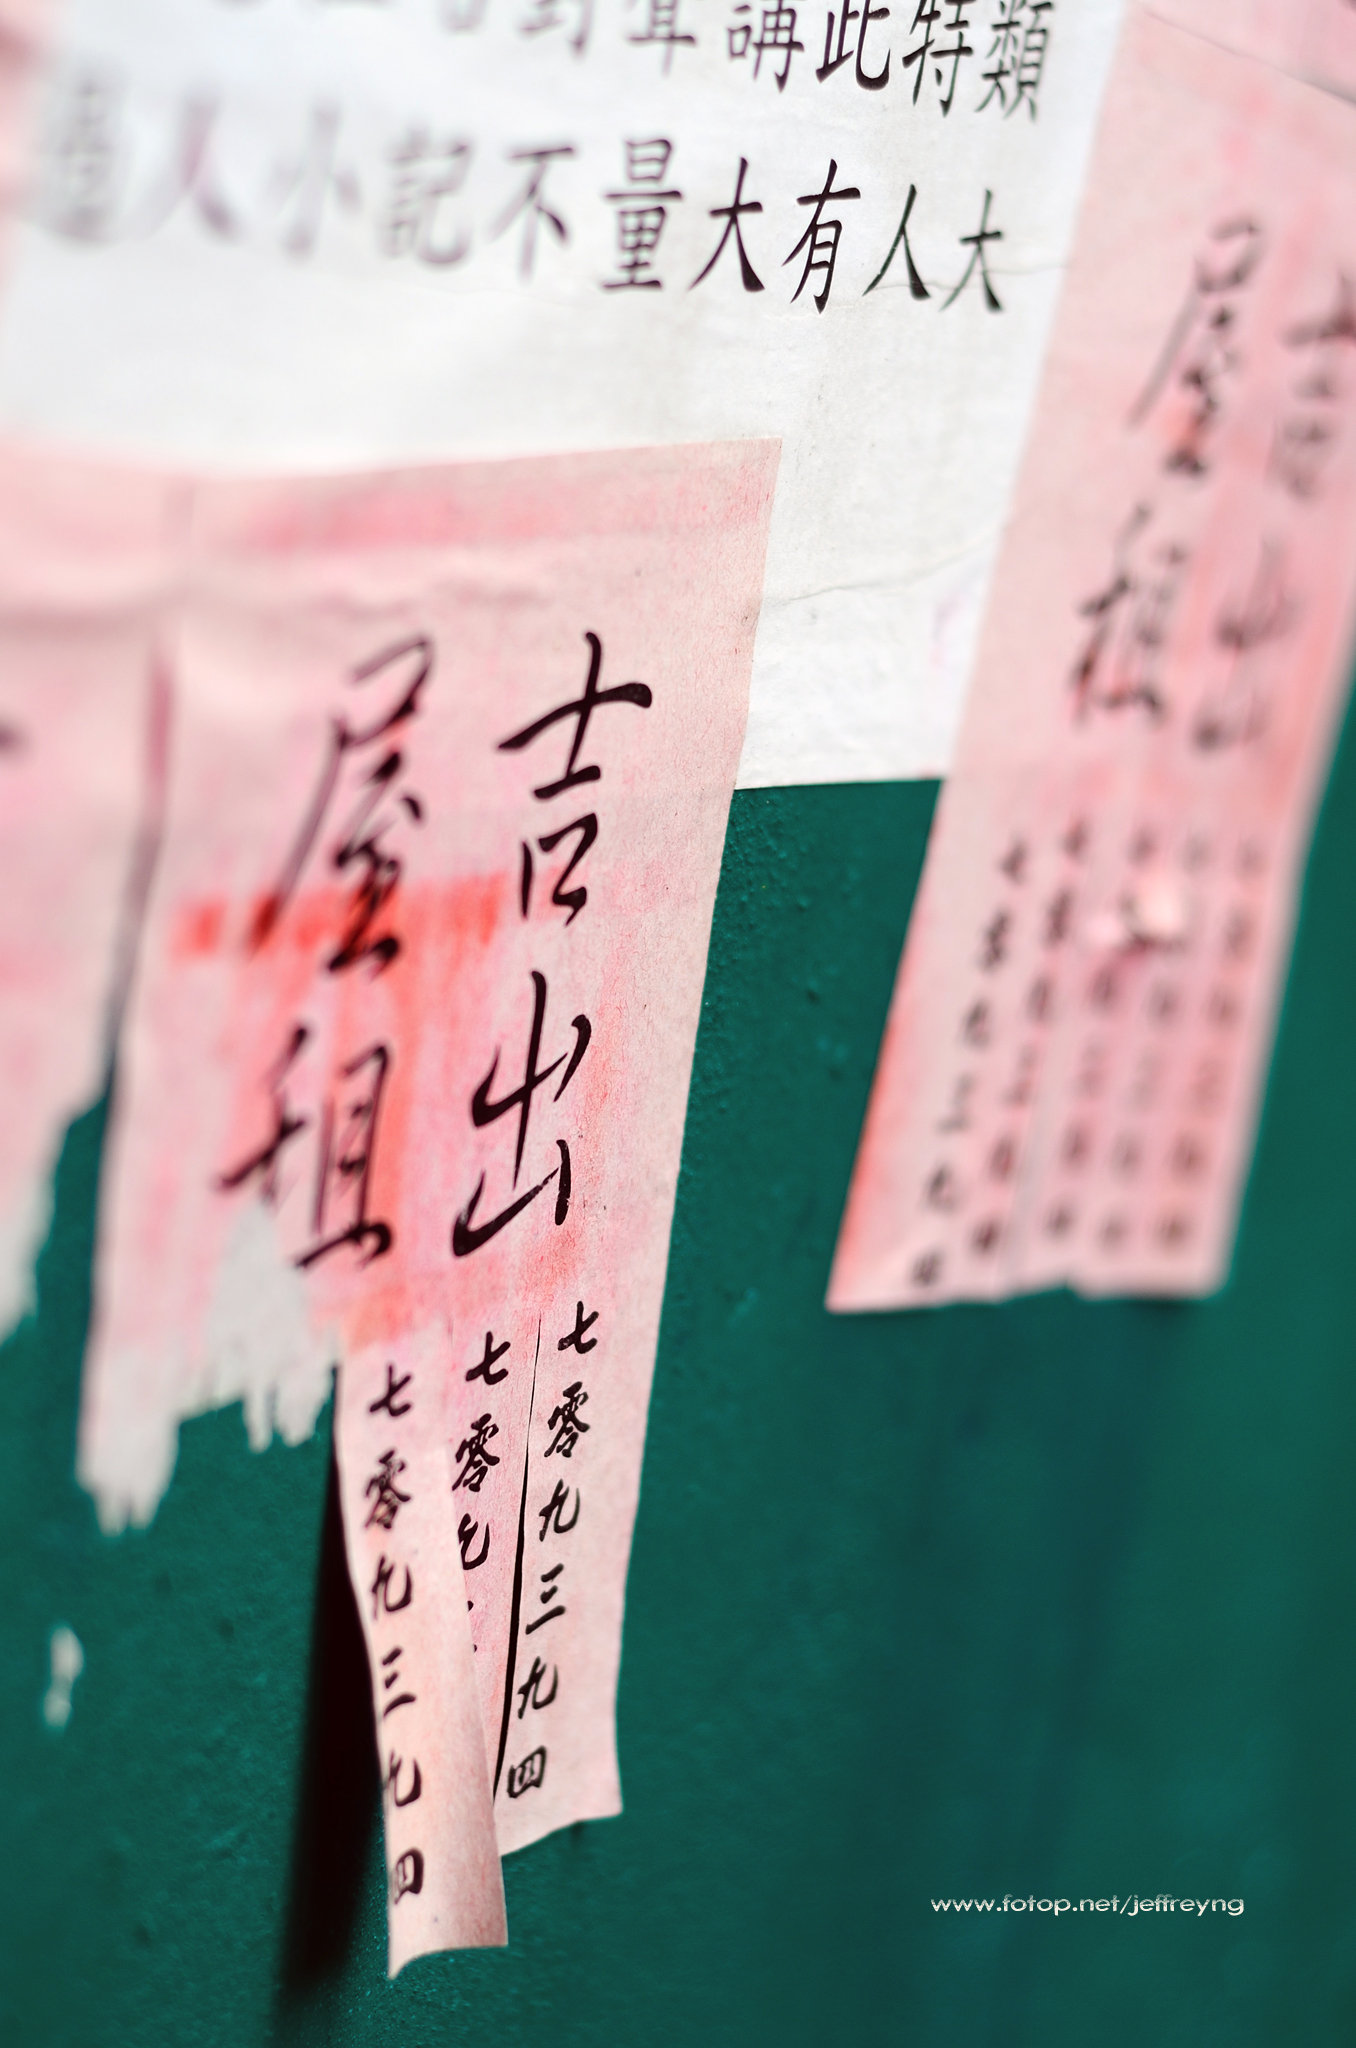 類特此講聲對
大人有大量不記小人過
吉屋
出租
七零九三九四
七零九
七零九三九四
吉屋
出租
七零九三九四
www.fotop.net/jeffreyng